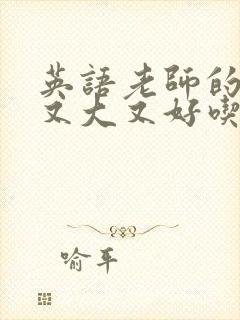 英語老師的
又大又好喫
喻平